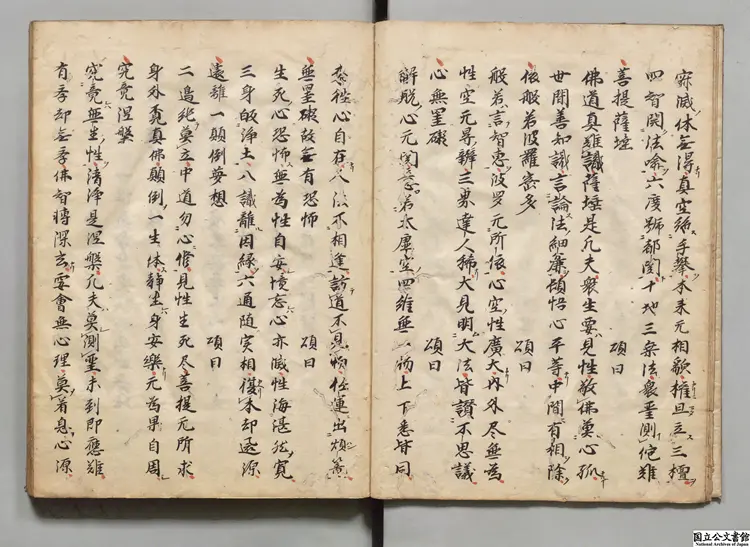 寂滅体無得真空絶手攀本来元相貌権且立三檀
四智開法喩六度號都関十地三乗法衆聖測他難
菩提薩埵　頌曰
佛道真難識薩埵是凡夫衆生要見性敬佛莫心孤
世間善知識言論法細麁頓悟心平等中間有相除
依般若波羅蜜多　頌曰
般若言智恵波羅元所依心空性廣大内外尽無為
性空无㝵辯三界達人稀大見明大法皆讃不思議
心無罣礙　頌曰
解脱心无㝵意若太虚空四維無一物上下悉皆同
来往心自在人法不相逢訪道不見物任運出煩籠
無罣礙故無有恐怖　頌曰
生死心恐怖無為性自安境忘心亦滅性海湛然寛
三身皈浄土八識離因縁六通随実相復本却還源
遠離一顛倒夢想　頌曰
二邊純莫立中道勿心修見性生死尽菩提无所求
身外覓真佛顛倒一生休静坐身安樂无為果自周
究竟涅槃
究竟無生性清浄是涅槃凡夫莫測聖未到即應難
有学却無学佛智轉深玄要會無心理莫著息心源
国立公文書館
National Archives of Japan